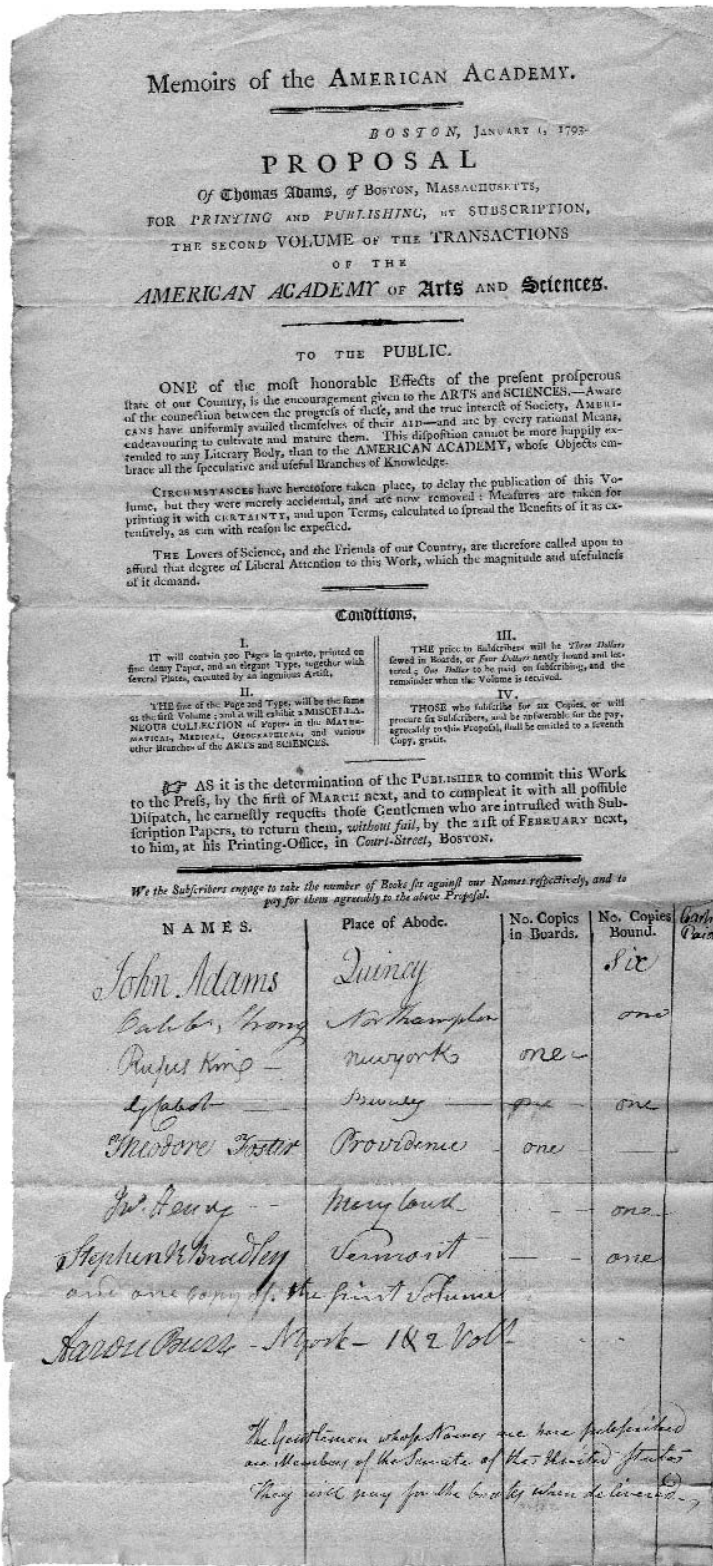 Memoirs of the AMERICAN ACADEMY.
BOSTON, JANUARY 1, 1793.
PROPOSAL
Of Thomas Adams, of BOSTON, MASSACHUSETTS,
FOR PRINTING AND PUBLISHING, BY SUBSCRIPTION,
THE SECOND VOLUME OF THE TRANSACTIONS
OF THE
AMERICAN ACADEMY OF Arts AND Sciences.
TO THE PUBLIC.
ONE of the moſt honorable Effects of the preſent proſperous
ſtate of our Country, is the encouragement given to the ARTS and SCIENCES.—Aware
of the connection between the progreſs of theſe, and the true intereſt of Society, AMERI-
CANS have uniformly availed themſelves of their AID—and are by every rational Means,
endeavouring to cultivate and mature them. This diſpoſition cannot be more happily ex-
tended to any Literary Body, than to the AMERICAN ACADEMY, whoſe Objects em-
brace all the ſpeculative and uſeful Branches of Knowledge.
CIRCUMSTANCES have heretofore taken place, to delay the publication of this Vo-
lume, but they were merely accidental, and are now removed: Meaſures are taken for
printing it with CERTAINTY, and upon Terms, calculated to ſpread the Benefits of it as ex-
tenſively, as can with reaſon be expected.
THE Lovers of Science, and the Friends of our Country, are therefore called upon to
afford that degree of Liberal Attention to this Work, which the magnitude and uſefulneſs
of it demand.
Conditions.
I.
IT will contain 500 Pages in quarto, printed on
fine demy Paper, and an elegant Type, together with
ſeveral Plates, executed by an ingenious Artiſt.
II.
THE ſize of the Page and Type, will be the ſame
as the firſt Volume; and it will exhibit a MISCELLA-
NEOUS COLLECTION of Papers in the MATHE-
MATICAL, MEDICAL, GEOGRAPHICAL, and various
other Branches of the ARTS and SCIENCES.
III.
THE price to Subſcribers will be Three Dollars
ſewed in Boards, or Four Dollars neatly bound and let-
tered; One Dollar to be paid on ſubſcribing, and the
remainder when the Volume is received.
IV.
THOSE who ſubſcribe for ſix Copies, or will
procure ſix Subſcribers, and be anſwerable for the pay,
agreeably to this Propoſal, ſhall be entitled to a ſeventh
Copy, gratis.
☞ AS it is the determination of the PUBLISHER to commit this Work
to the Preſs, by the firſt of MARCH next, and to compleat it with all poſſible
Diſpatch, he earneſtly requeſts thoſe Gentlemen who are intruſted with Sub-
ſcription Papers, to return them, without fail, by the 21ſt of FEBRUARY next,
to him, at his Printing-Office, in Court-Street, BOSTON.
We the Subſcribers engage to take the number of Books ſet againſt our Names reſpectively, and to
pay for them agreeably to the above Propoſal.
NAMES. Place of Abode. No. Copies in Boards. No. Copies Bound. Cash Paid
John Adams Quincy Six
Caleb Strong Northampton one
Rufus King — newyork one —
G Cabot — — — one
Theodore Foster Providence — one — —
Jno. Henry — — Maryland — — one —
Stephen R Bradley Vermont — — one
and one copy of the first Volume
Aaron Burr — N York — 1 & 2 Vols
The Gentlemen whose Names are here subscribed
are Members of the Senate of the United States
They will pay for the books when delivered —